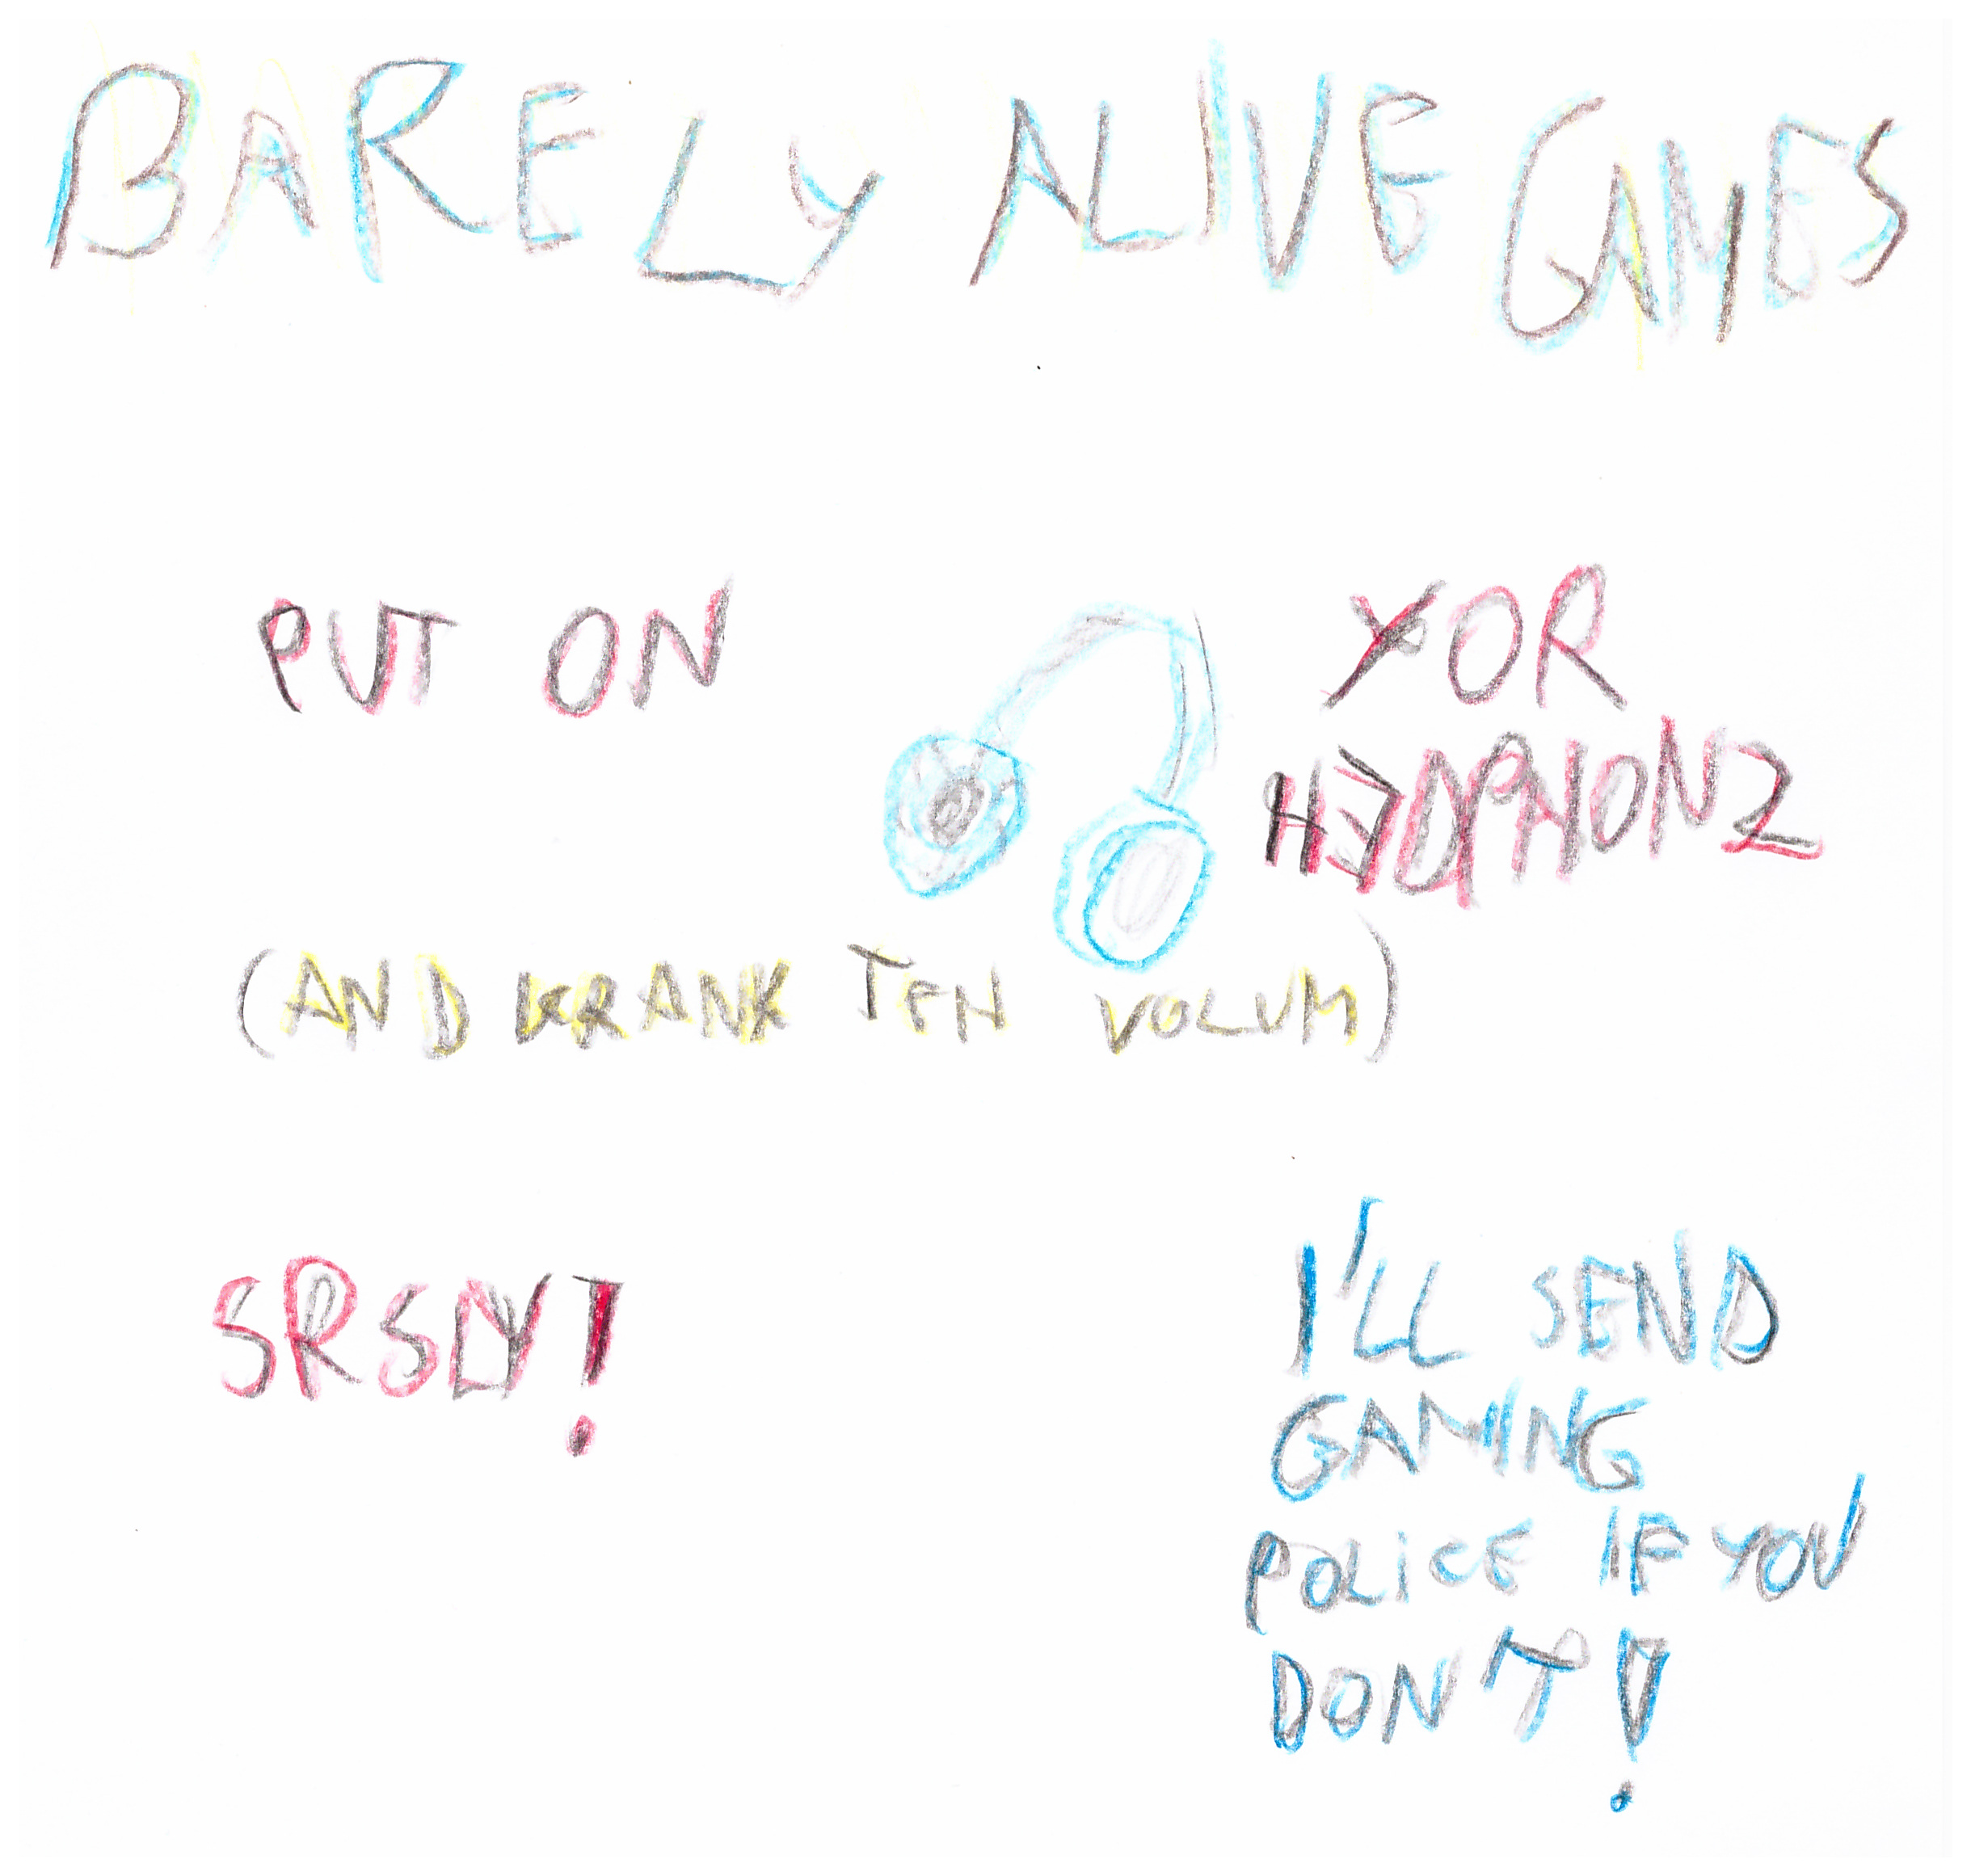 BARELY ALIVE GAMES
PUT ON YOR
HEDPHONZ
(AND KRANK TEH VOLUM)
SRSLY!
I'LL SEND
GAMING
POLICE IF YOU
DON'T!